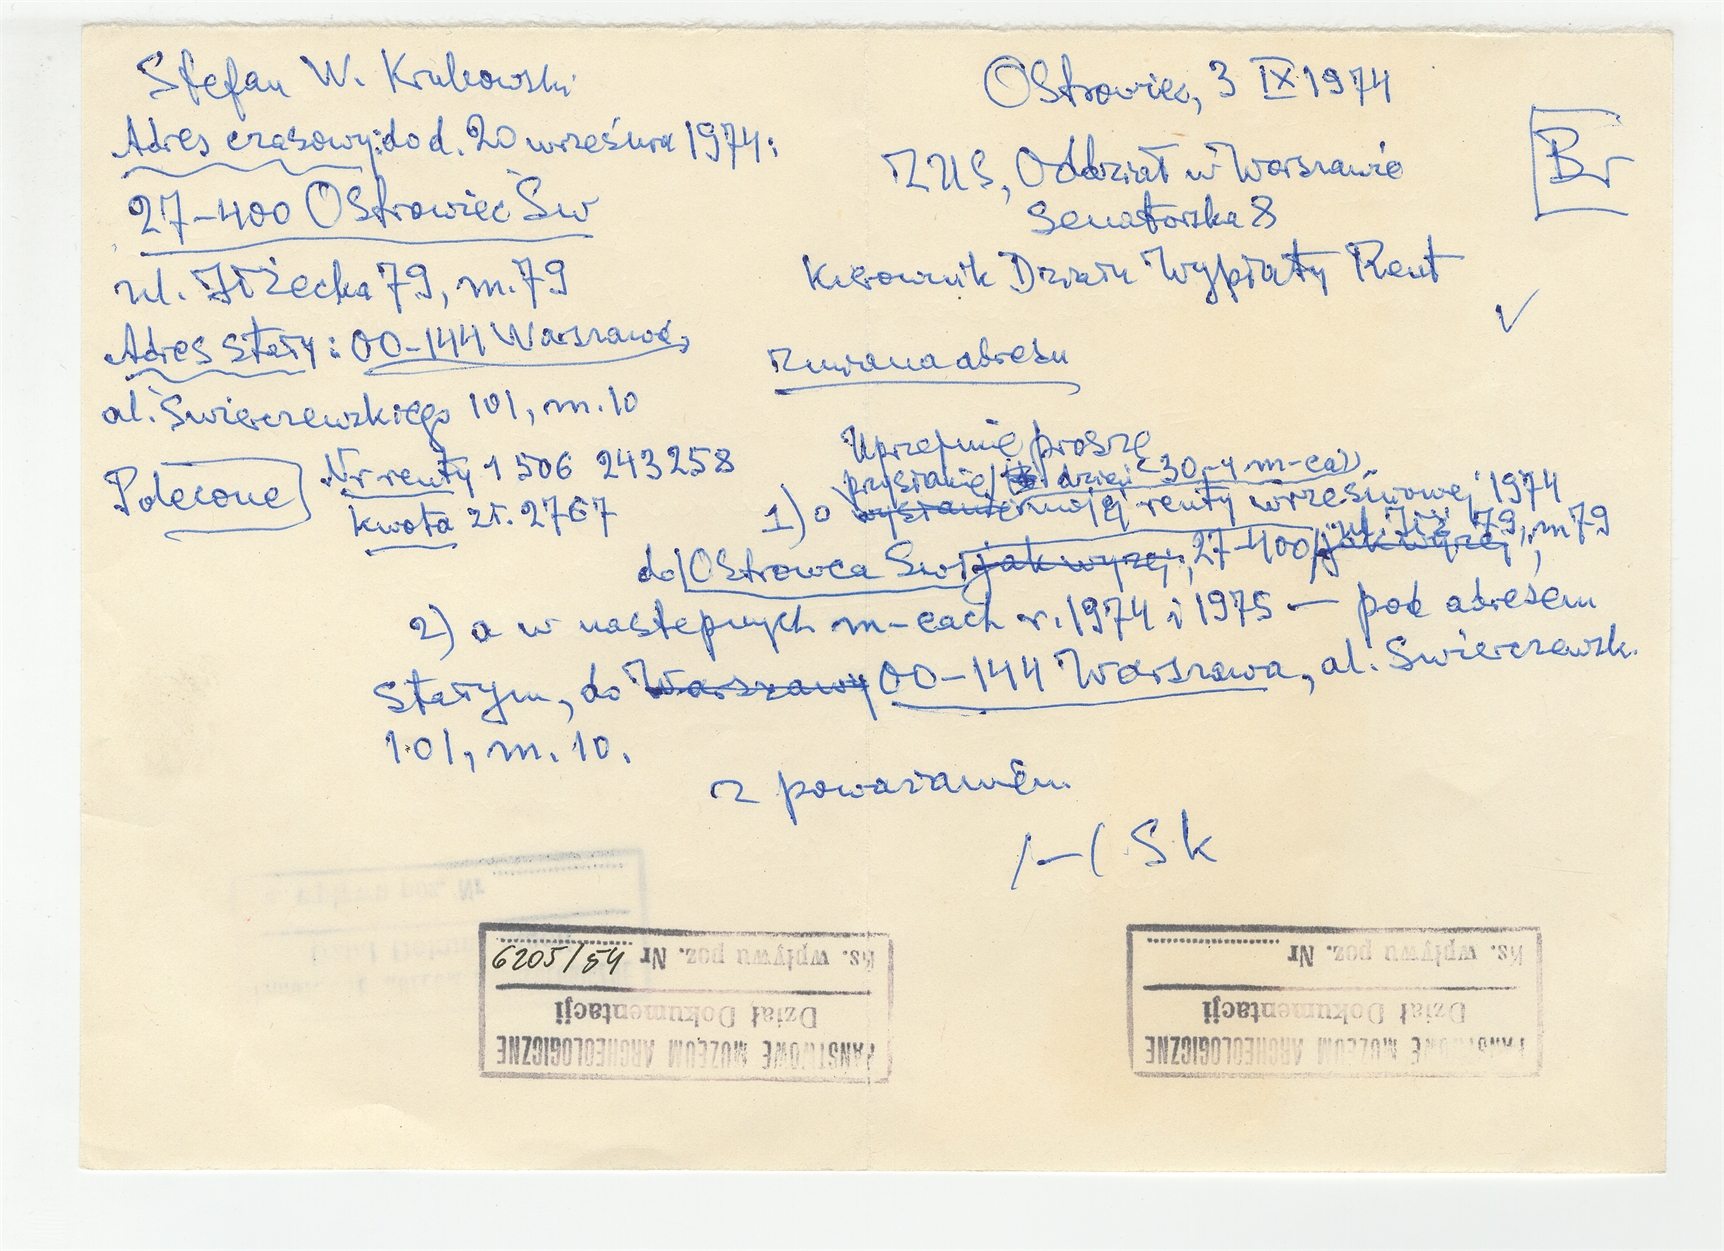 Stefan W. Krukowski
Adres czasowy: do d. 20 września 1974:
27-400 Ostrowiec Św
ul. Iłżecka 79, m. 79
Adres stały: 00-144 Warszawa,
al. Świerczewskiego 101, m. 10
Polecone
Nr renty 1 506 243258
kwota zł. 2767
Ostrowiec, 3 IX 1974
Br
ZUS, Oddział w Warszawie
Senatorska 8
Kierownik Działu Wypłaty Rent
Zmiana adresu
Uprzejmie proszę
przysłanie dzień <30-y m-ca>
1) o wysłanie mojej renty wrześniowej 1974
ul. Iłż. 79, m 79
do Ostrowca Św. jak wyżej, 27-400 jak wyżej;
2) a w następnych m-cach r. 1974 i 1975 — pod adresem
stałym, do Warszawy 00-144 Warszawa, al. Świerczewsk.
101, m. 10.
z poważaniem
/-/ Sk
PAŃSTWOWE MUZEUM ARCHEOLOGICZNE
Dział Dokumentacji
Ks. wpływu poz. Nr 6205/54
PAŃSTWOWE MUZEUM ARCHEOLOGICZNE
Dział Dokumentacji
Ks. wpływu poz. Nr